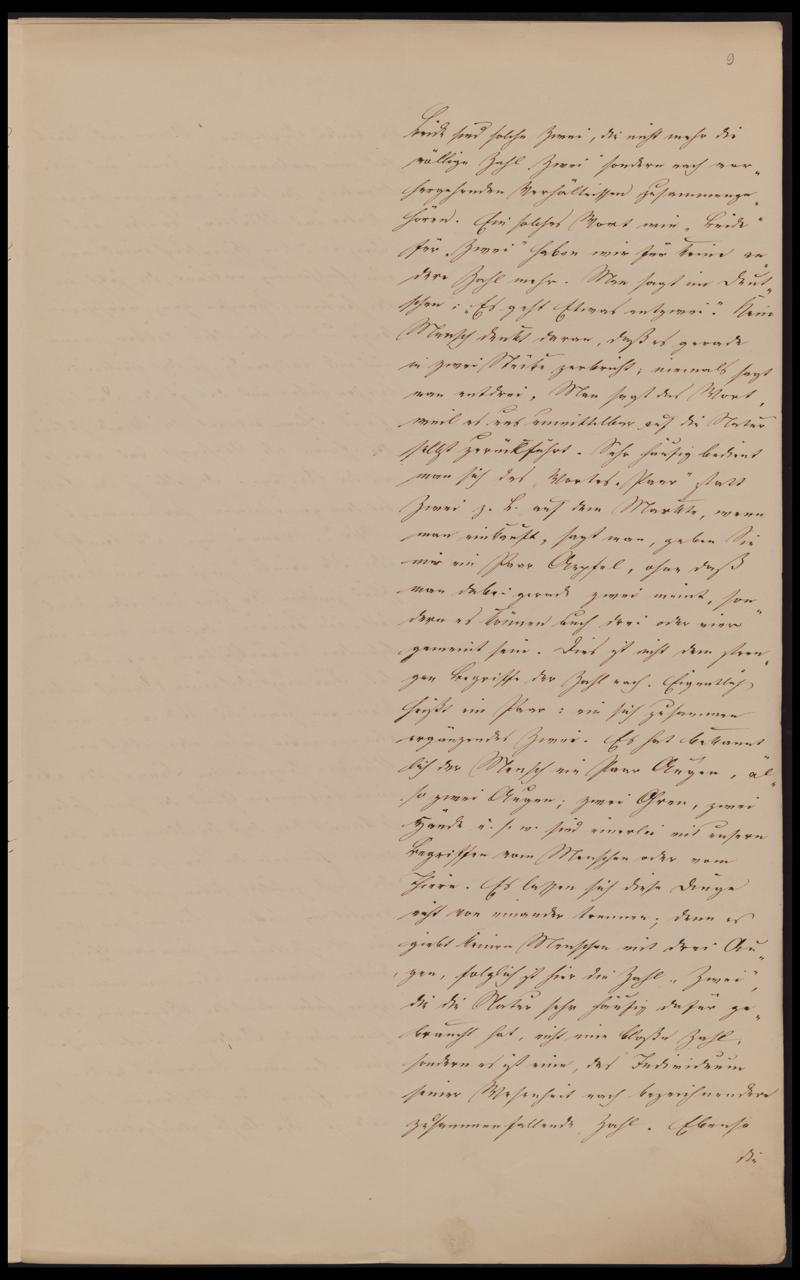 9
Beide sind solche Zwei, die nicht mehr die
völlige Zahl „Zwei" sondern nach vor-
hergehenden Verhältnissen zusammenge-
hören. Ein solches Wort wie „Beide"
für „Zwei" haben wir für keine an-
dere Zahl mehr. Man sagt im Deut-
schen: „Es geht Etwas entzwei." Kein
Mensch denkt daran, daß es gerade
in zwei Stücke zerbricht; niemals sagt
man entdrei. Man sagt das Wort,
weil es uns unmittelbar auf die Natur
selbst zurückführt. Sehr häufig bedient
man sich des Wortes „Paar" statt
Zwei z. B. auf dem Markte, wenn
man einkauft, sagt man, geben Sie
mir ein Paar Aepfel, ohne daß
man dabei gerade zwei meint, son-
dern es können auch drei oder vier
gemeint sein. Dies ist nicht dem stren-
gen Begriffe der Zahl nach. Eigentlich
heißt ein Paar: ein sich zusammen
ergänzendes Zwei. Es hat bekannt-
lich der Mensch ein Paar Augen, al-
so zwei Augen; zwei Ohren, zwei
Hände u. s. w. sind einerlei mit unsern
Begriffen vom Menschen oder vom
Thiere. Es lassen sich diese Dinge
nicht von einander trennen; denn es
giebt keinen Menschen mit drei Au-
gen, folglich ist hier die Zahl „Zwei",
die die Natur sehr häufig dafür ge-
braucht hat, nicht eine bloße Zahl,
sondern es ist eine, das Individuum
seiner Wesenheit nach bezeichnendere
zusammenfallende Zahl. Ebenso
die